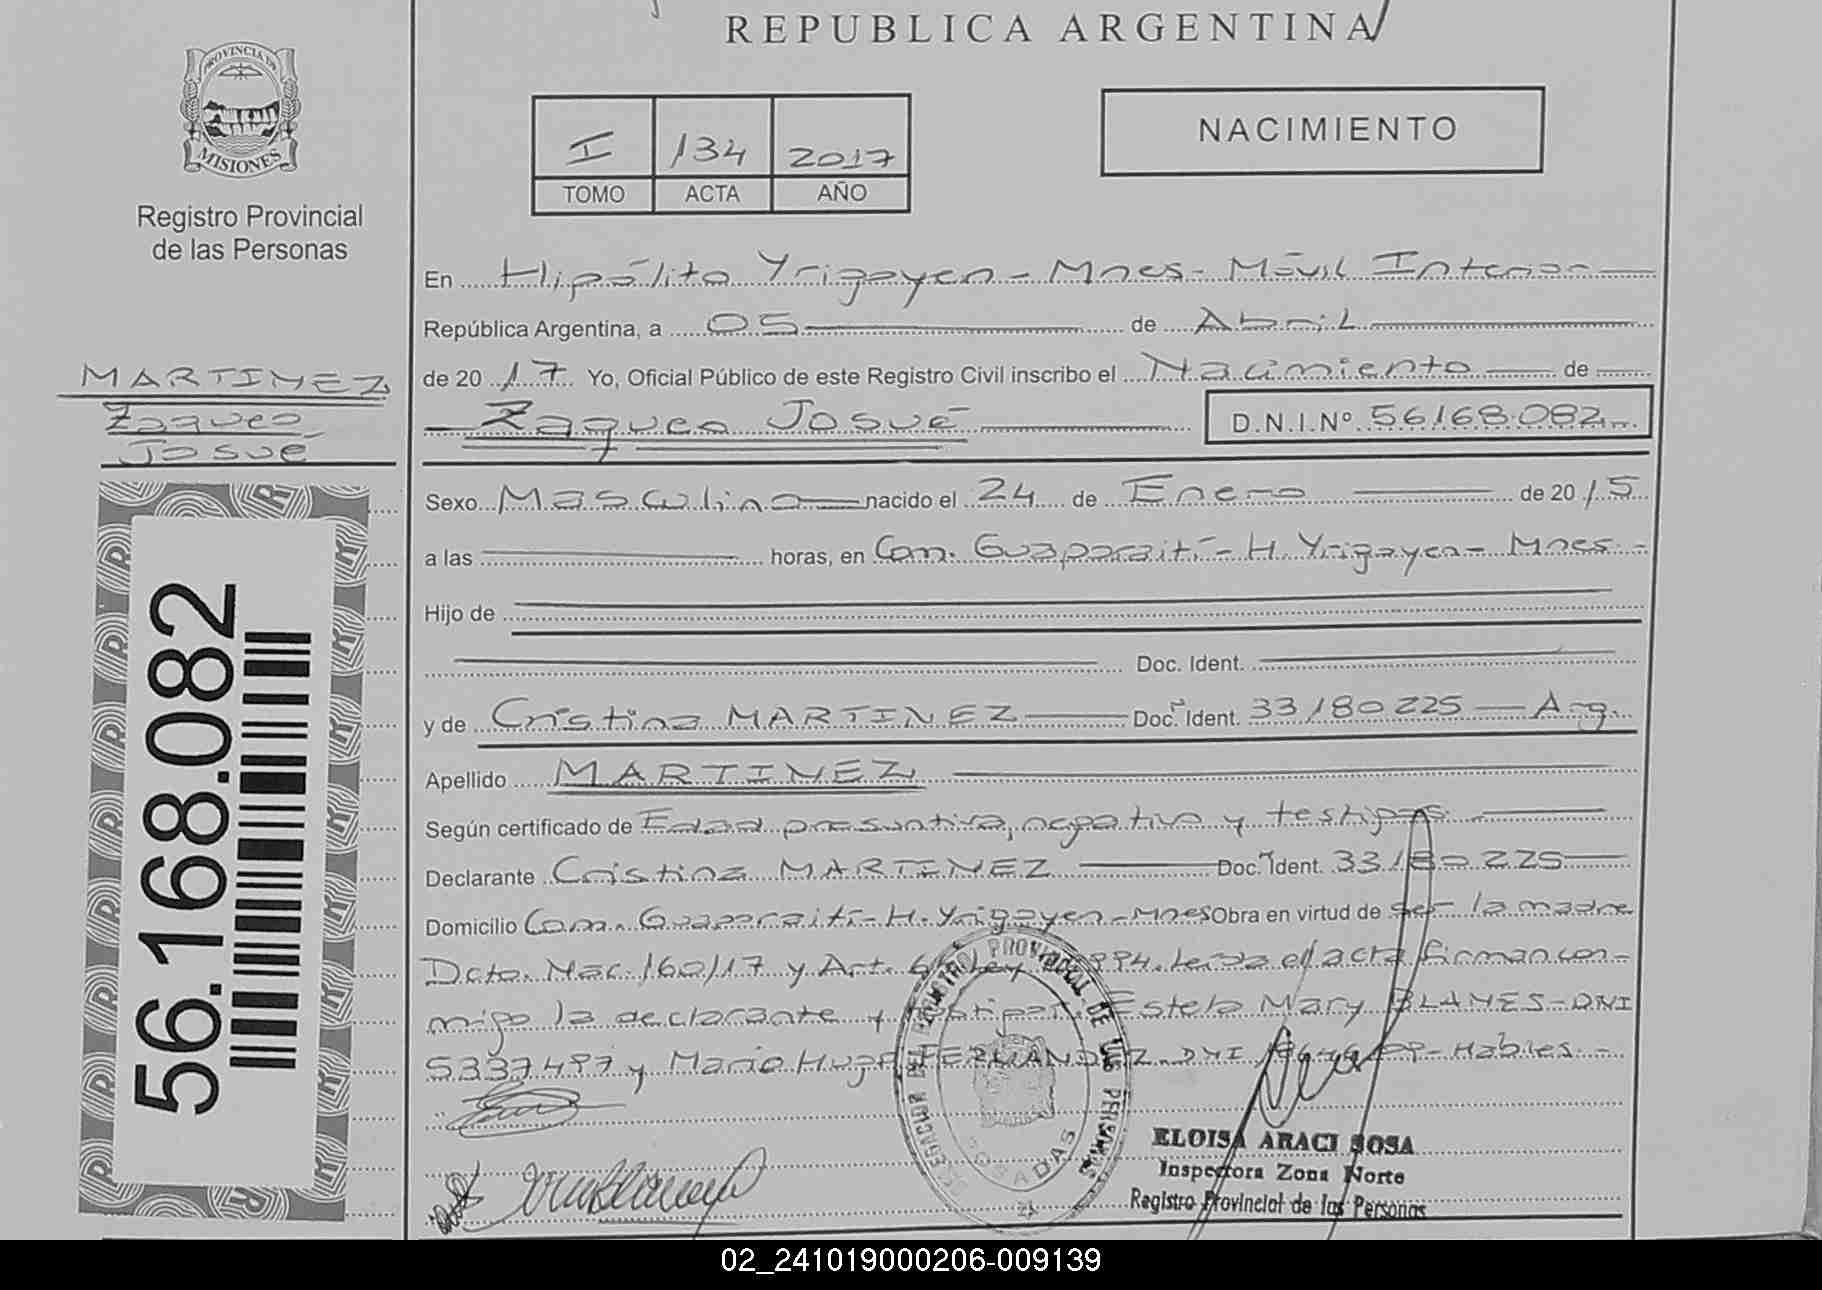 REPUBLICA ARGENTINA
PROVINCIA DE
MISIONES
Registro Provincial
de las Personas
I 134 2017
TOMO ACTA AÑO
NACIMIENTO
En Hipólito Yrigoyen - Mnes - Móvil Interior
República Argentina, a 05 de Abril
de 20 17 Yo, Oficial Público de este Registro Civil inscribo el Nacimiento de
Zaqueo Josué D.N.I.Nº 56168.082
MARTINEZ
Zaqueo
Josué
56.168.082
Sexo Masculino nacido el 24 de Enero de 20 15
a las horas, en Com. Guaporaití - H. Yrigoyen - Mnes -
Hijo de
Doc. Ident.
y de Cristina MARTINEZ Doc. Ident. 33180225 - Arg.
Apellido MARTINEZ
Según certificado de Edad presuntiva, negativo y testigos
Declarante Cristina MARTINEZ Doc. Ident. 33180225
Domicilio Com. Guaporaití - H. Yrigoyen - Mnes Obra en virtud de ser la madre
Dcto. Nac. 160/17 y Art. Ley Leída el acta firman con-
migo la declarante y testigos Estela Mary BLANES - DNI
5337497 y Mario Hugo FERNANDEZ DNI Hábiles -
REGISTRO PROVINCIAL DE LAS PERSONAS
POSADAS
ELOISA ARACI SOSA
Inspectora Zona Norte
Registro Provincial de las Personas
02_241019000206-009139